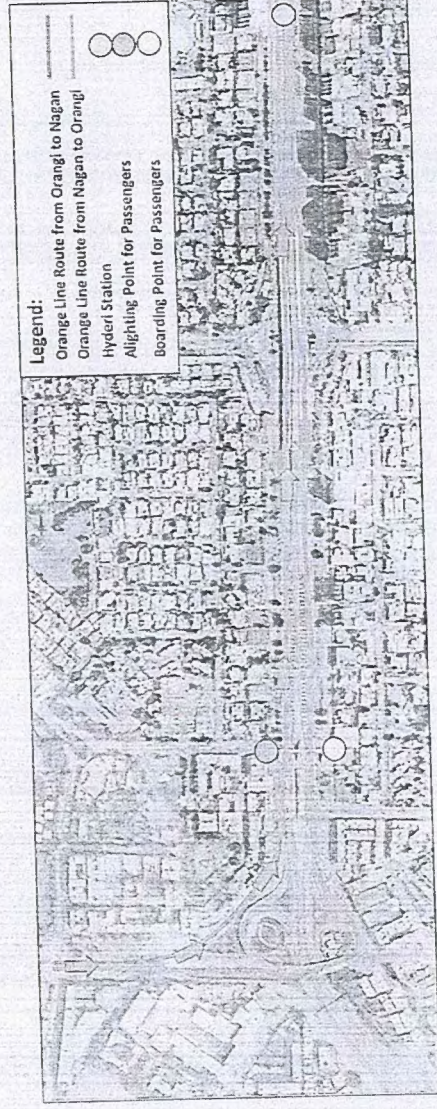 Legend:
Orange Line Route from Orangi to Nagan
Orange Line Route from Nagan to Orangi
Hyderi Station
Alighting Point for Passengers
Boarding Point for Passengers